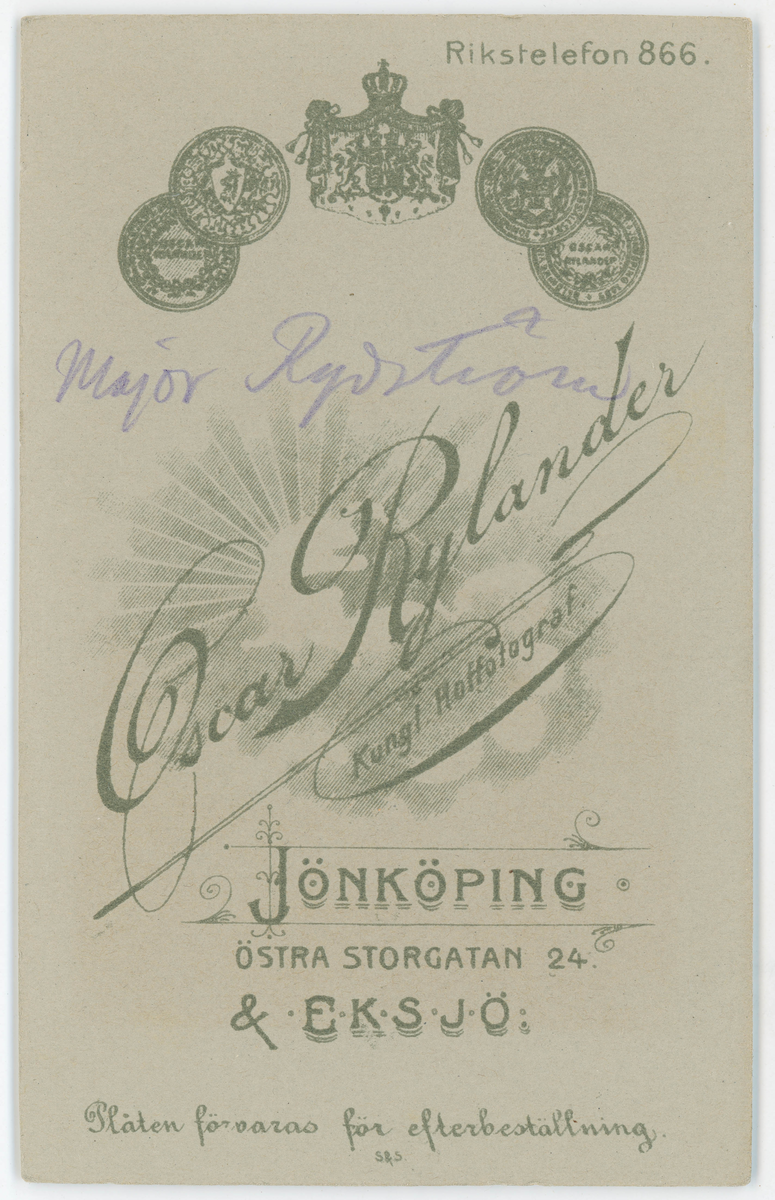 Rikstelefon 866.
OSCAR RYLANDER
OSCAR RYLANDER
Major Rydström
Oscar Rylander
Kungl. Hoffotograf.
JÖNKÖPING
ÖSTRA STORGATAN 24.
& E·K·S·J·Ö:
Plåten förvaras för efterbeställning.
S&S.